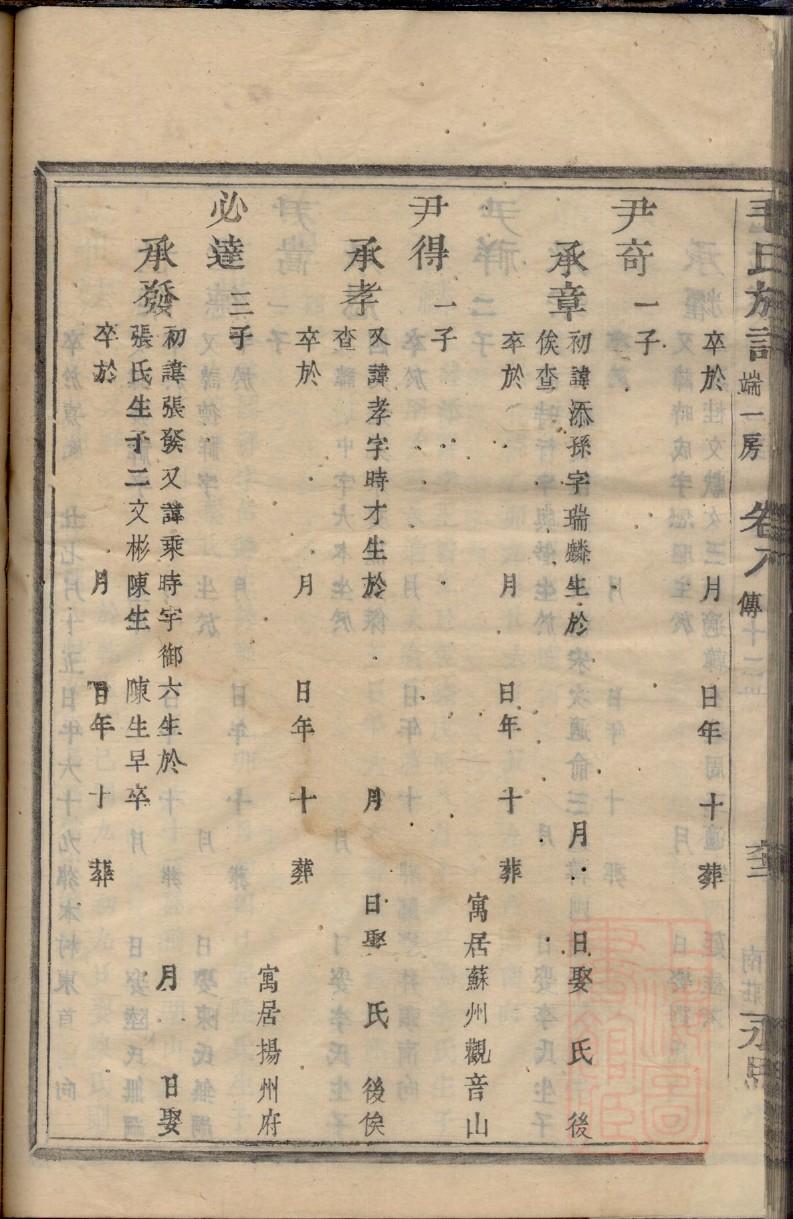 氏族譜 端一房 卷八 傳 南莊
卒於 月 日年 十 葬
尹奇 一子
承章 初諱添孫字瑞麟生於 月 日娶 氏 後
俟查
卒於 月 日年 十 葬 寓居蘇州觀音山
尹得 一子
承孝 又諱孝字時才生於 月 日娶 氏 後俟
查
卒於 月 日年 十 葬 寓居揚州府
必達 三子
承發 初諱張發又諱乘時字御六生於 月 日娶
張氏生子二文彬陳生 陳生早卒
卒於 月 日年 十 葬